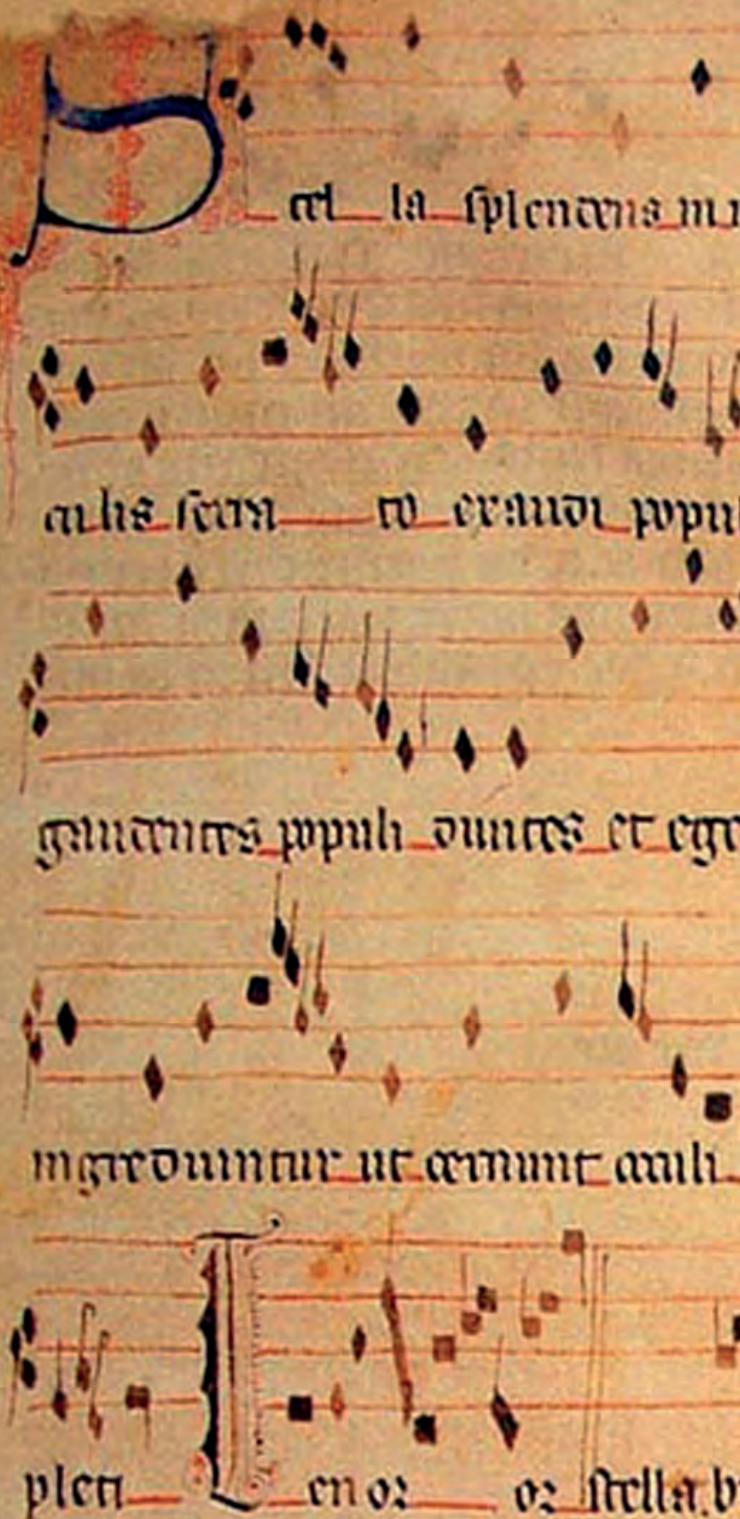 Stella splendens in
culis serra to exaudi popu
gaudentes populi diuites et ege
ingrediuntur ut cernunt oculi
pleti Tenor or stella b